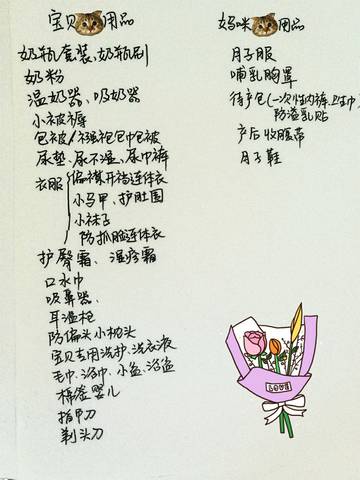 宝贝用品
奶瓶套装、奶瓶刷
奶粉
温奶器、吸奶器
小被褥
包被/襁褓包巾包被
尿垫、尿不湿、尿巾裤
衣服 偏襟开裆连体衣
小马甲、护肚围
小袜子
防抓脸连体衣
护臀霜、湿疹霜
口水巾
吸鼻器、
耳温枪
防偏头小枕头
宝贝专用洗护、洗衣液
毛巾、浴巾、小盆、浴盆
棉签婴儿
指甲刀
剃头刀
妈咪用品
月子服
哺乳胸罩
待产包(一次性内裤 卫生巾)
防溢乳贴
产后收腹带
月子鞋